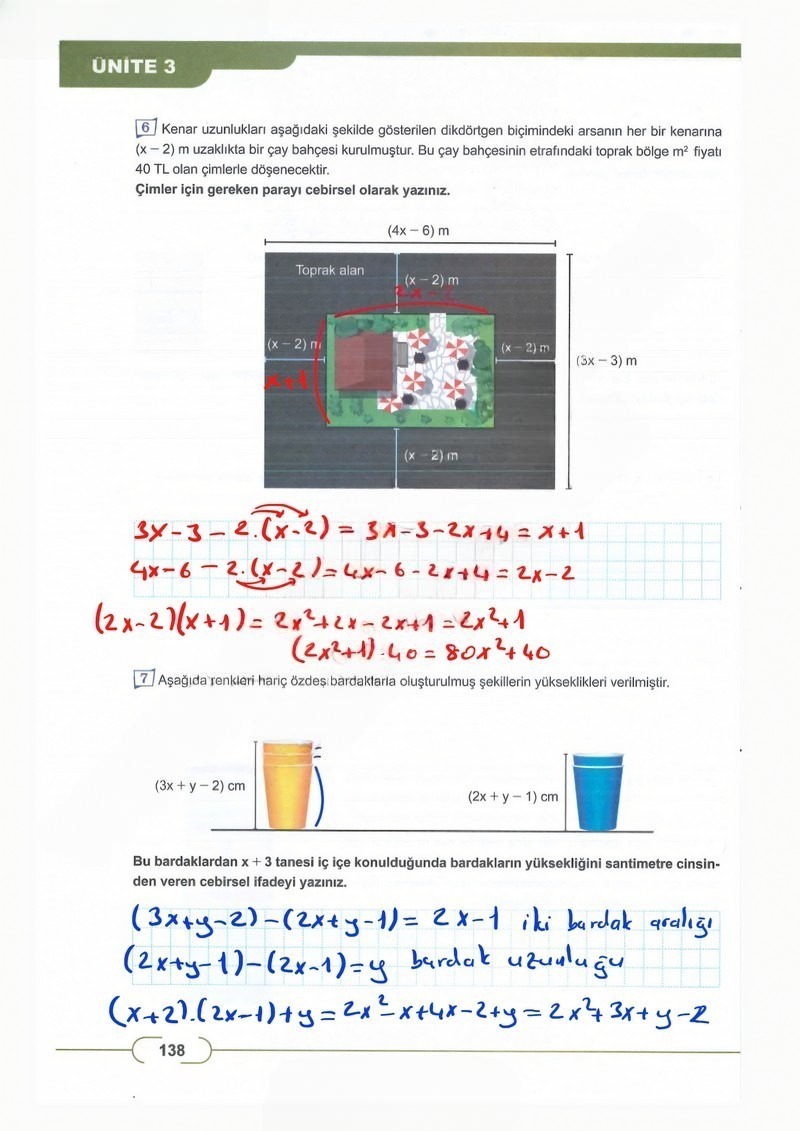 ÜNİTE 3
6 Kenar uzunlukları aşağıdaki şekilde gösterilen dikdörtgen biçimindeki arsanın her bir kenarına
(x – 2) m uzaklıkta bir çay bahçesi kurulmuştur. Bu çay bahçesinin etrafındaki toprak bölge m² fiyatı
40 TL olan çimlerle döşenecektir.
Çimler için gereken parayı cebirsel olarak yazınız.
(4x – 6) m
Toprak alan
(x – 2) m
2x-2
(x – 2) m
(x – 2) m
(3x – 3) m
x+1
(x – 2) m
3x-3-2.(x-2) = 3x-3-2x+4 = x+1
4x-6-2.(x-2) = 4x-6-2x+4 = 2x-2
(2x-2)(x+1) = 2x²+2x-2x+1 = 2x²+1
(2x²+1).40 = 80x²+40
7 Aşağıda renkleri hariç özdeş bardaklarla oluşturulmuş şekillerin yükseklikleri verilmiştir.
(3x + y – 2) cm
(2x + y – 1) cm
Bu bardaklardan x + 3 tanesi iç içe konulduğunda bardakların yüksekliğini santimetre cinsin-
den veren cebirsel ifadeyi yazınız.
(3x+y-2)-(2x+y-1) = 2x-1 iki bardak aralığı
(2x+y-1)-(2x-1)=y bardak uzunluğu
(x+2).(2x-1)+y = 2x²-x+4x-2+y = 2x²+3x+y-2
138